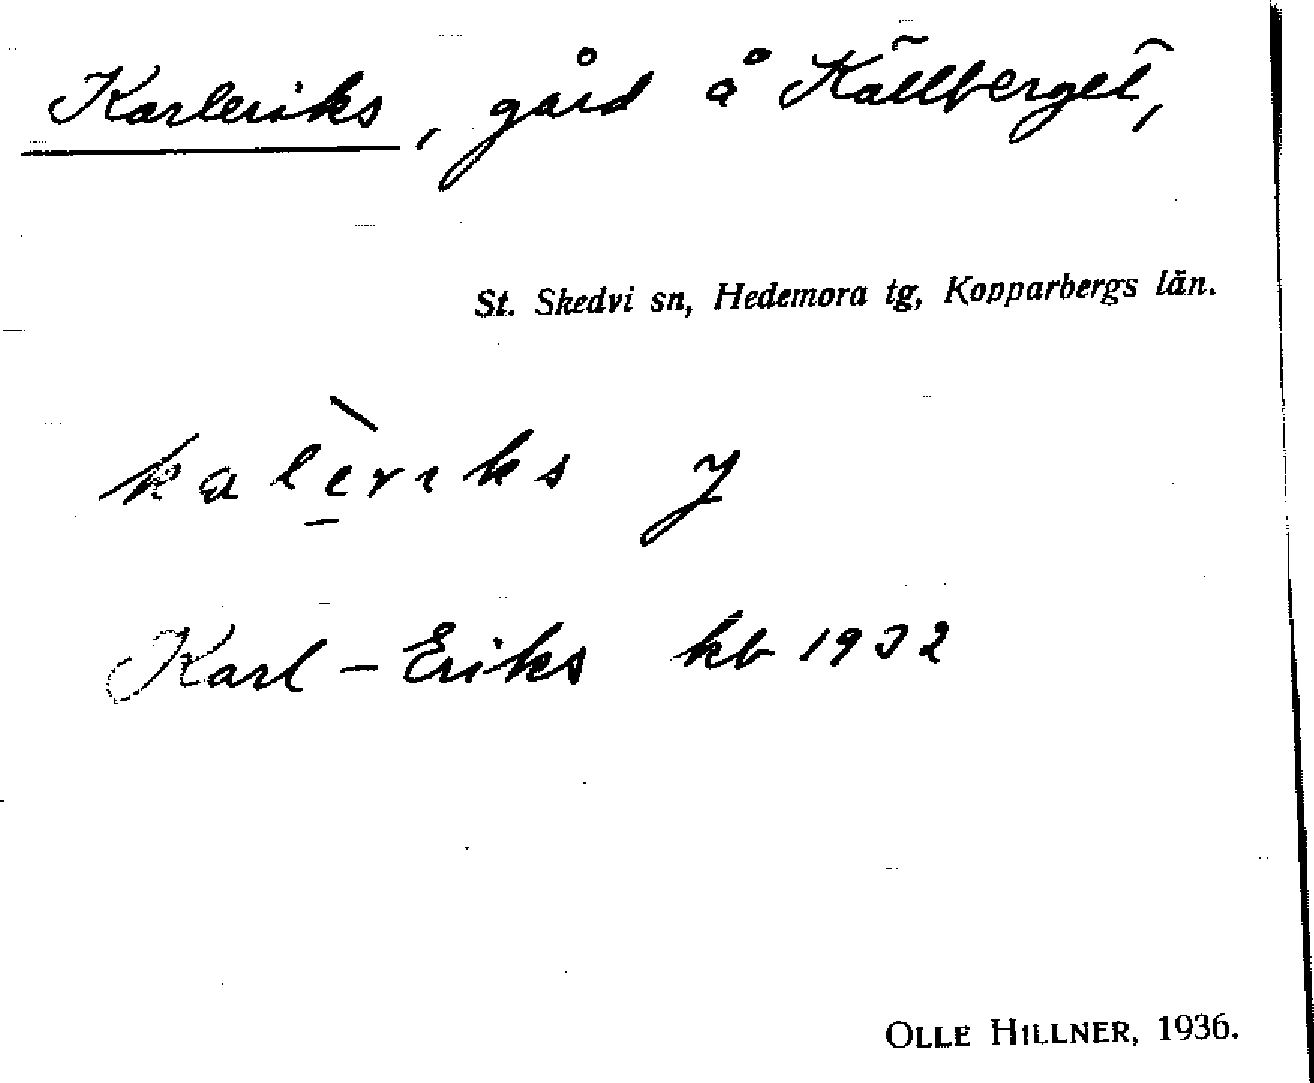 Karleriks, gård å Källberget,
St. Skedvi sn, Hedemora tg, Kopparbergs län.
kalèriks
Karl-Eriks kb 1932
OLLE HILLNER, 1936.